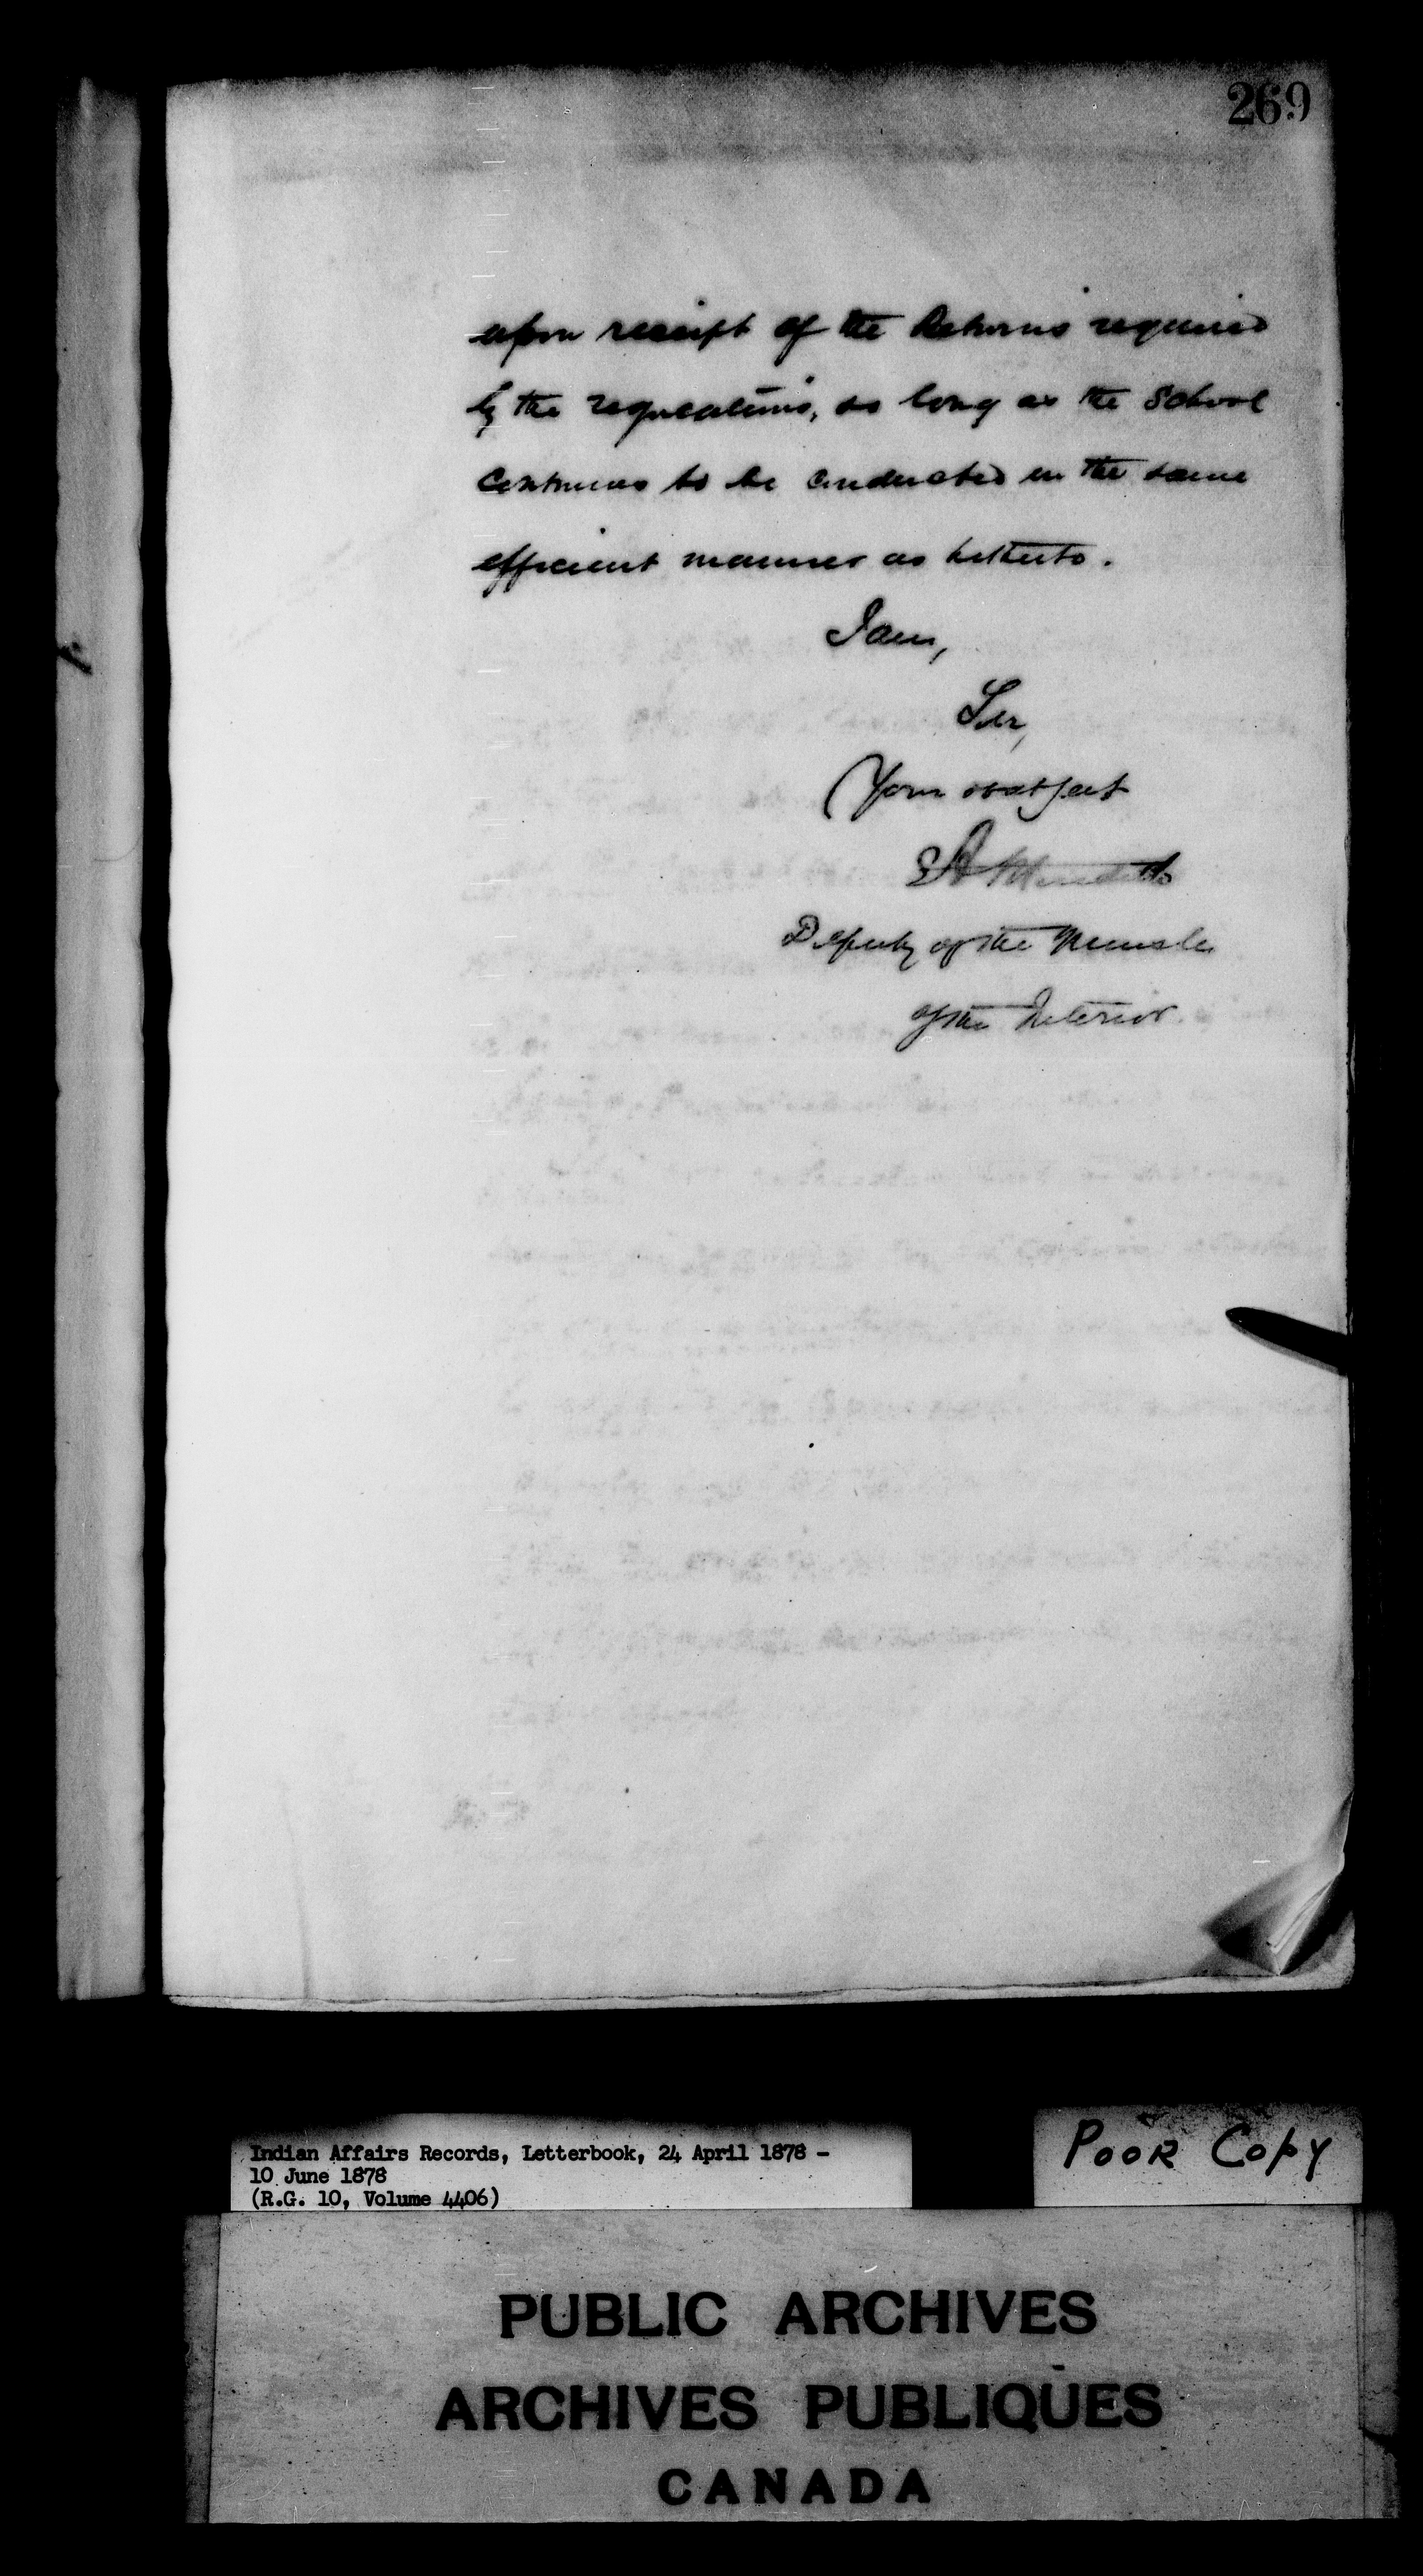 269
upon receipt of the Returns required
by the regulations, so long as the School
continues to be conducted in the same
efficient manner as hitherto.
I am,
Sir,
Your obdt Sert
EA Meredith
Deputy of the Minister
of the Interior.
Indian Affairs Records, Letterbook, 24 April 1878 -
10 June 1878
(R.G. 10, Volume 4406)
POOR COPY
PUBLIC ARCHIVES
ARCHIVES PUBLIQUES
CANADA